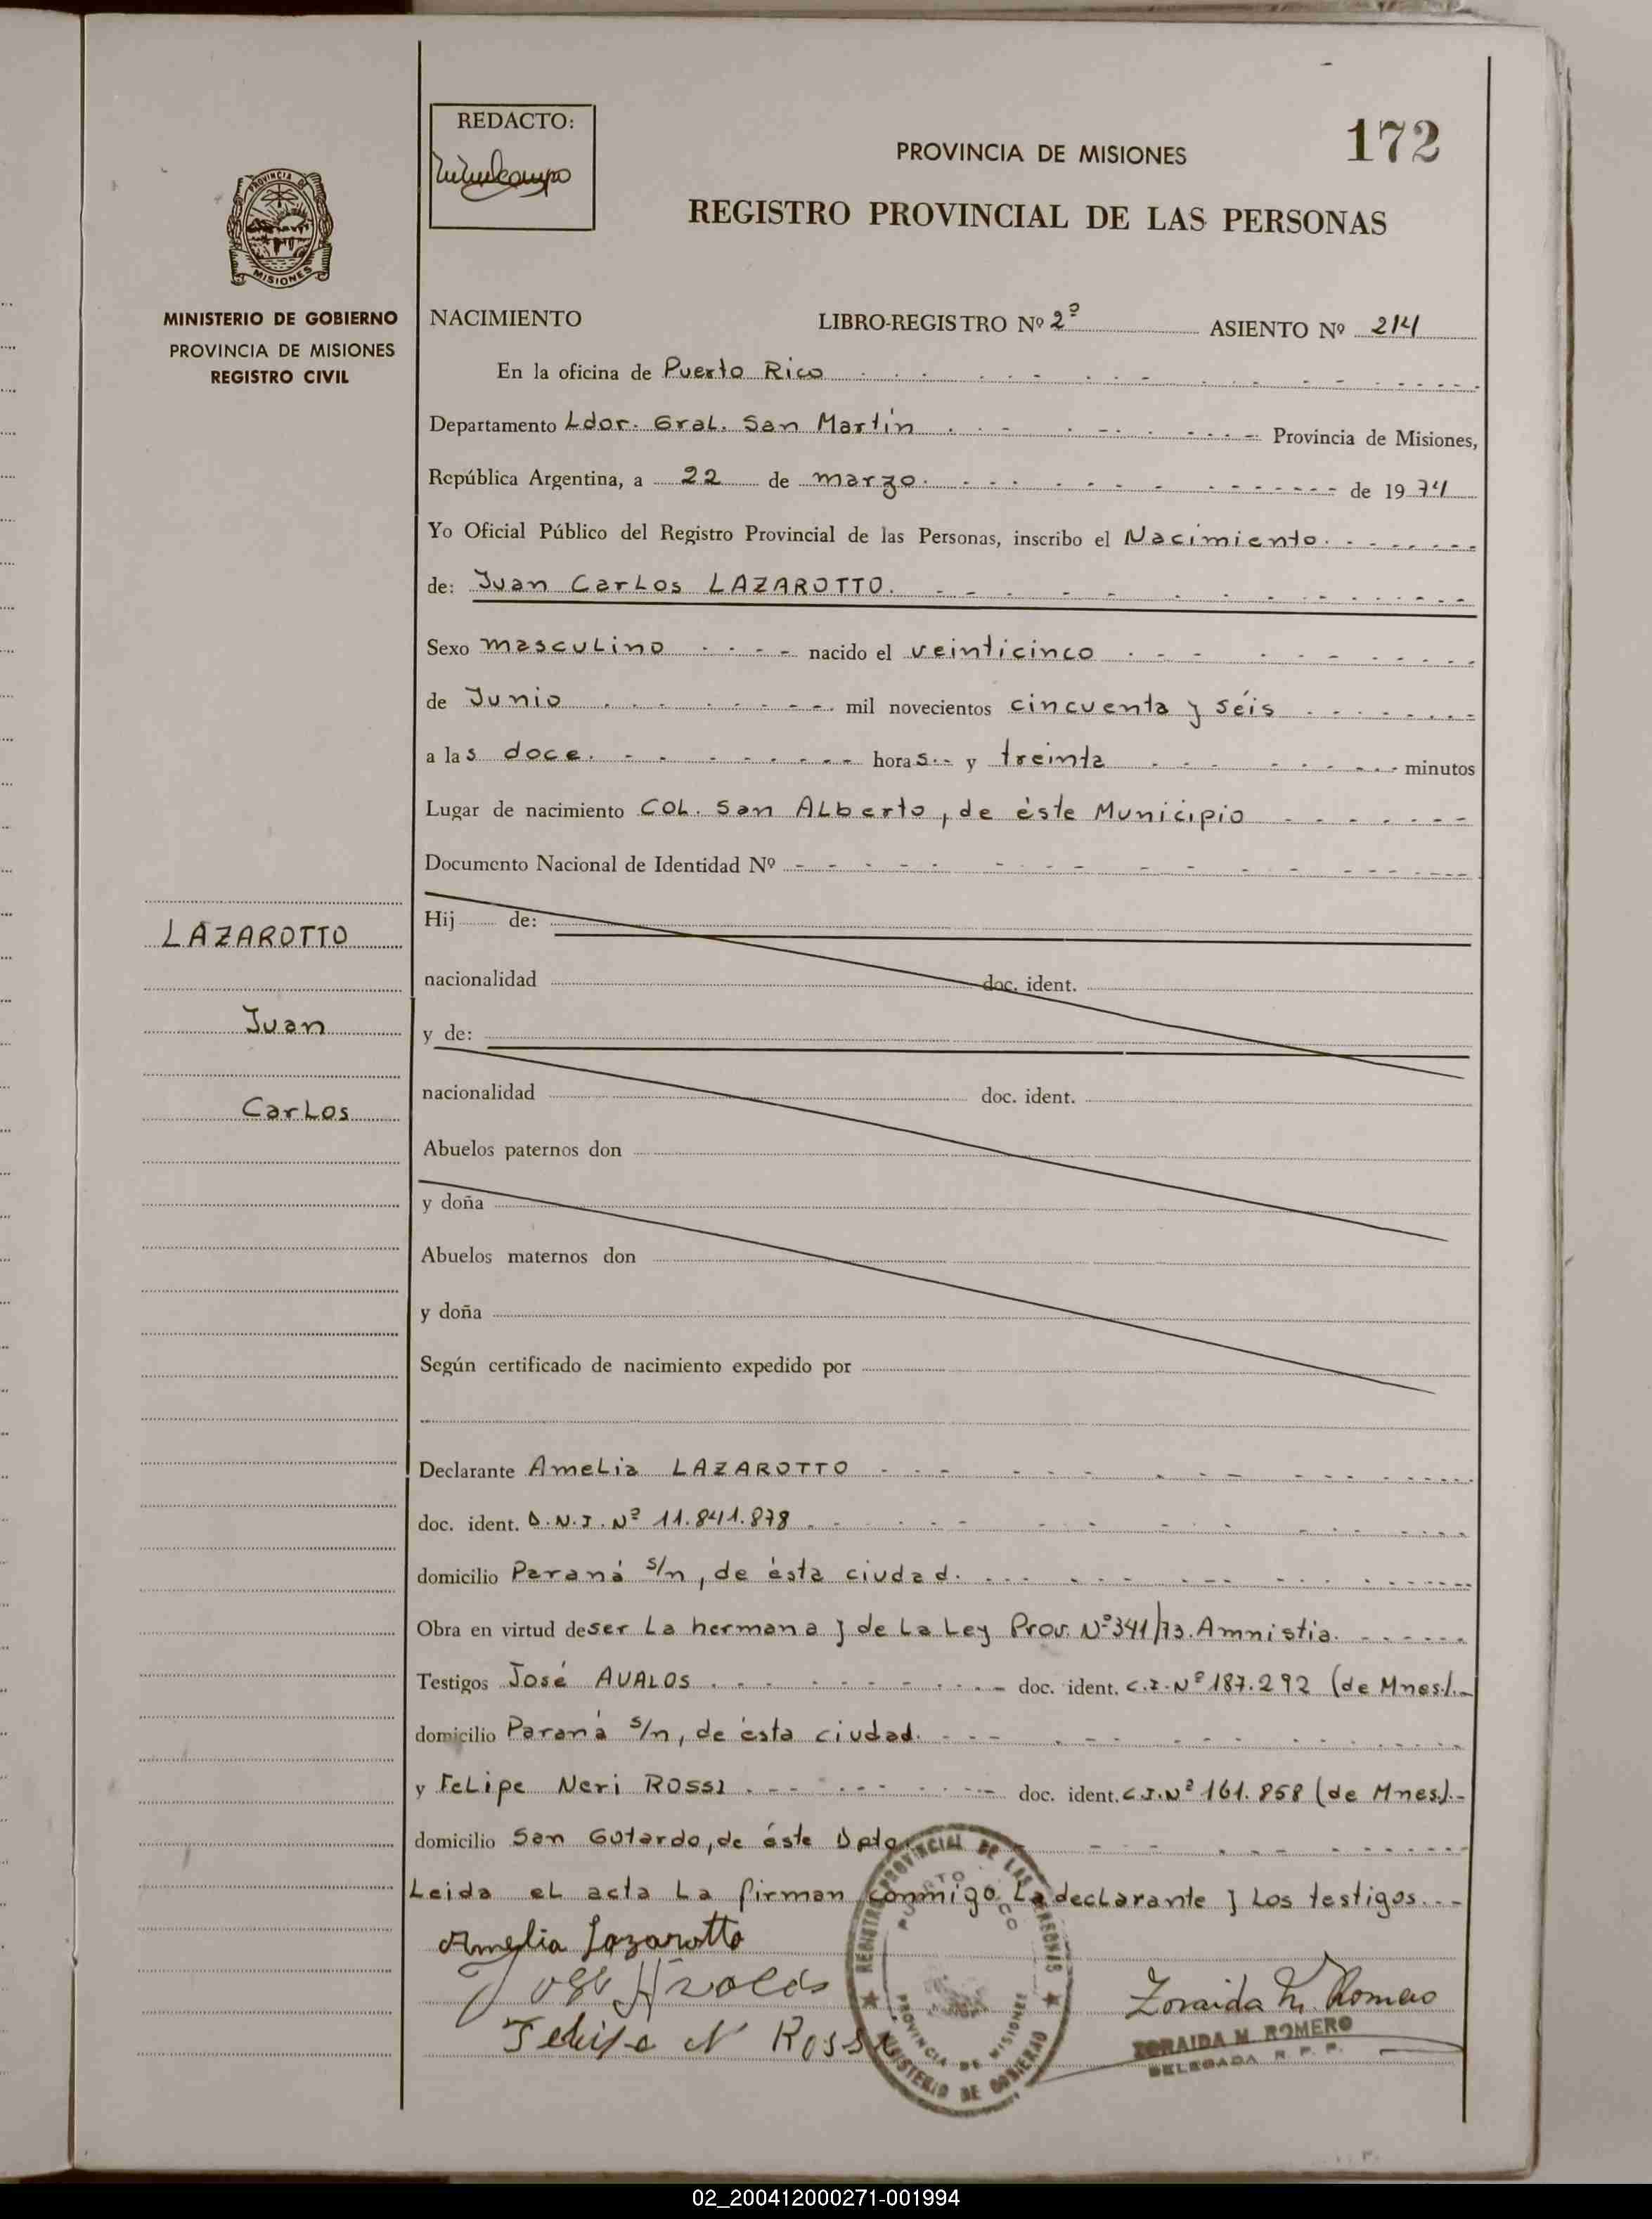 REDACTO:
172
PROVINCIA DE MISIONES
REGISTRO PROVINCIAL DE LAS PERSONAS
PROVINCIA DE
MISIONES
MINISTERIO DE GOBIERNO
PROVINCIA DE MISIONES
REGISTRO CIVIL
NACIMIENTO LIBRO-REGISTRO Nº 2º ASIENTO Nº 214
En la oficina de Puerto Rico
Departamento Ldor. Gral. San Martín Provincia de Misiones,
República Argentina, a 22 de marzo de 1974
Yo Oficial Público del Registro Provincial de las Personas, inscribo el Nacimiento
de: Juan Carlos LAZAROTTO.
Sexo masculino nacido el veinticinco
de Junio mil novecientos cincuenta y séis
a las doce horas y treinta minutos
Lugar de nacimiento COL. San Alberto, de éste Municipio
Documento Nacional de Identidad Nº
LAZAROTTO
Juan
Carlos
Hij de:
nacionalidad doc. ident.
y de:
nacionalidad doc. ident.
Abuelos paternos don
y doña
Abuelos maternos don
y doña
Según certificado de nacimiento expedido por
Declarante Amelia LAZAROTTO
doc. ident. D.N.I. Nº 11.841.878
domicilio Paraná s/n, de ésta ciudad.
Obra en virtud de ser la hermana y de la Ley Prov. Nº 341/73. Amnistia.
Testigos José AVALOS doc. ident. C.I. Nº 187.292 (de Mnes).-
domicilio Paraná s/n, de ésta ciudad.
y Felipe Neri ROSSI doc. ident. C.I. Nº 161.858 (de Mnes).-
domicilio San Gotardo, de éste Dpto.
Leida el acta la firman conmigo la declarante y los testigos.
Amelia Lazarotto
José Avalos
Felipe N Rossi
REGISTRO PROVINCIAL DE LAS PERSONAS
PUERTO RICO
PROVINCIA DE MISIONES
MINISTERIO DE GOBIERNO
Zoraida M. Romero
ZORAIDA M. ROMERO
DELEGADA R. P. P.
02_200412000271-001994